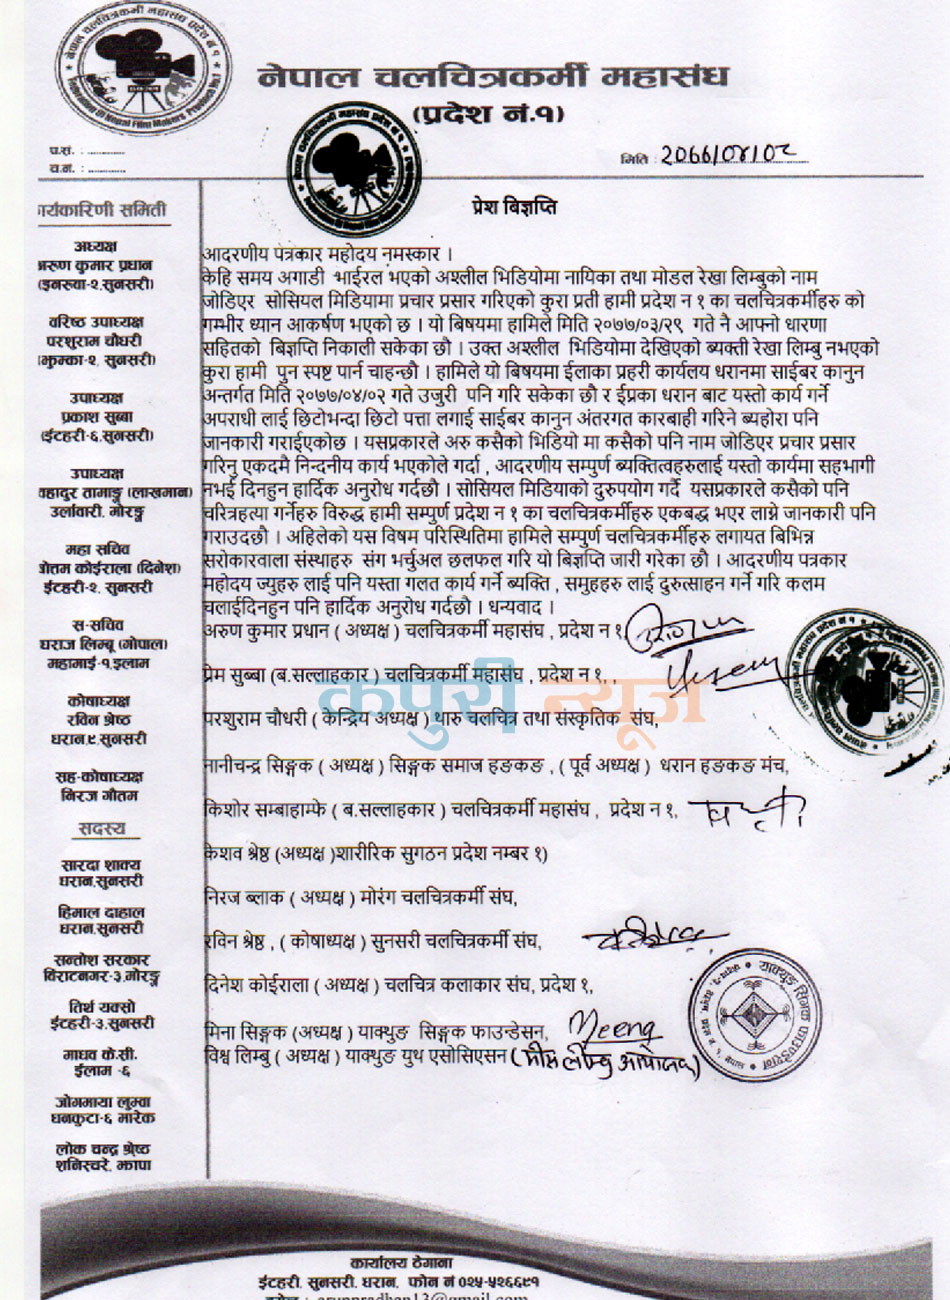 नेपाल चलचित्रकर्मी महासंघ
(प्रदेश नं.१)
प.सं. : ............
च.नं. : ............
मिति :
प्रेश बिज्ञप्ति
र्यकारिणी समिती
अध्यक्ष
रूण कुमार प्रधान
(इनरुवा-२.सुनसरी)
वरिष्ठ उपाध्यक्ष
परशुराम चौधरी
झुम्का-२. सुनसरी)
उपाध्यक्ष
प्रकाश सुब्बा
(ईटहरी-६.सुनसरी)
उपाध्यक्ष
वहादुर तामाङ्ग (लाखमान)
उर्लावारी, मोरङ्ग
महा सचिव
त्तम कोईराला (दिनेश)
ईटहरी-२. सुनसरी
स-सचिव
घराज लिम्बू (गोपाल)
महामाई-१.इलाम
कोषाध्यक्ष
रविन श्रेष्ठ
धरान.९.सुनसरी
सह-कोषाध्यक्ष
निरज गौतम
सदस्य
सारदा शाक्य
धरान.सुनसरी
हिमाल दाहाल
धरान.सुनसरी
सन्तोश सरकार
विराटनगर-३.मोरङ्ग
तिर्थ यक्सो
ईटहरी-३.सुनसरी
माधव के.सी.
ईलाम -६
जोगमाया लुम्वा
धनकुटा-६ मारेक
लोक चन्द्र श्रेष्ठ
शनिस्चरे, झापा
आदरणीय पत्रकार महोदय नमस्कार ।
केहि समय अगाडी भाईरल भएको अश्लील भिडियोमा नायिका तथा मोडल रेखा लिम्बुको नाम
जोडिएर सोसियल मिडियामा प्रचार प्रसार गरिएको कुरा प्रती हामी प्रदेश न १ का चलचित्रकर्मीहरु को
गम्भीर ध्यान आकर्षण भएको छ । यो बिषयमा हामिले मिति २०७७/०३/२९ गते नै आफ्नो धारणा
सहितको बिज्ञप्ति निकाली सकेका छौ । उक्त अश्लील भिडियोमा देखिएको ब्यक्ती रेखा लिम्बु नभएको
कुरा हामी पुन स्पष्ट पार्न चाहन्छौ । हामिले यो बिषयमा ईलाका प्रहरी कार्यलय धरानमा साईबर कानुन
अन्तर्गत मिति २०७७/०४/०२ गते उजुरी पनि गरि सकेका छौ र ईप्रका धरान बाट यस्तो कार्य गर्ने
अपराधी लाई छिटोभन्दा छिटो पत्ता लगाई साईबर कानुन अंतरगत कारबाही गरिने ब्यहोरा पनि
जानकारी गराईएकोछ । यसप्रकारले अरु कसैको भिडियो मा कसैको पनि नाम जोडिएर प्रचार प्रसार
गरिनु एकदमै निन्दनीय कार्य भएकोले गर्दा , आदरणीय सम्पुर्ण ब्यक्तित्वहरुलाई यस्तो कार्यमा सहभागी
नभई दिनहुन हार्दिक अनुरोध गर्दछौ । सोसियल मिडियाको दुरुपयोग गर्दै यसप्रकारले कसैको पनि
चरित्रहत्या गर्नेहरु विरुद्ध हामी सम्पुर्ण प्रदेश न १ का चलचित्रकर्मीहरु एकबद्ध भएर लाग्ने जानकारी पनि
गराउदछौ । अहिलेको यस विषम परिस्थितिमा हामिले सम्पुर्ण चलचित्रकर्मीहरु लगायत बिभिन्न
सरोकारवाला संस्थाहरु संग भर्चुअल छलफल गरि यो बिज्ञप्ति जारी गरेका छौ । आदरणीय पत्रकार
महोदय ज्युहरु लाई पनि यस्ता गलत कार्य गर्ने ब्यक्ति , समुहहरु लाई दुरुत्साहन गर्ने गरि कलम
चलाईदिनहुन पनि हार्दिक अनुरोध गर्दछौ । धन्यवाद ।
अरुण कुमार प्रधान ( अध्यक्ष ) चलचित्रकर्मी महासंघ , प्रदेश न १
प्रेम सुब्बा (ब.सल्लाहकार ) चलचित्रकर्मी महासंघ , प्रदेश न १, ,
कपुरी न्यूज
परशुराम चौधरी ( केन्द्रिय अध्यक्ष ) थारु चलचित्र तथा संस्कृतिक संघ,
नानीचन्द्र सिङ्गक ( अध्यक्ष ) सिङ्गक समाज हङकङ , ( पूर्व अध्यक्ष ) धरान हङकङ मंच,
किशोर सम्बाहाम्फे ( ब.सल्लाहकार ) चलचित्रकर्मी महासंघ , प्रदेश न १,
केशव श्रेष्ठ (अध्यक्ष )शारीरिक सुगठन प्रदेश नम्बर १)
निरज ब्लाक ( अध्यक्ष ) मोरंग चलचित्रकर्मी संघ,
रविन श्रेष्ठ , ( कोषाध्यक्ष ) सुनसरी चलचित्रकर्मी संघ,
दिनेश कोईराला ( अध्यक्ष ) चलचित्र कलाकार संघ, प्रदेश १,
मिना सिङ्गक (अध्यक्ष ) याक्थुङ सिङ्गक फाउन्डेसन, Meena
विश्व लिम्बु ( अध्यक्ष ) याक्थुङ युथ एसोसिएसन
कार्यालय ठेगाना
ईटहरी. सुनसरी, धरान, फोन नं ०२५-५२६६९१